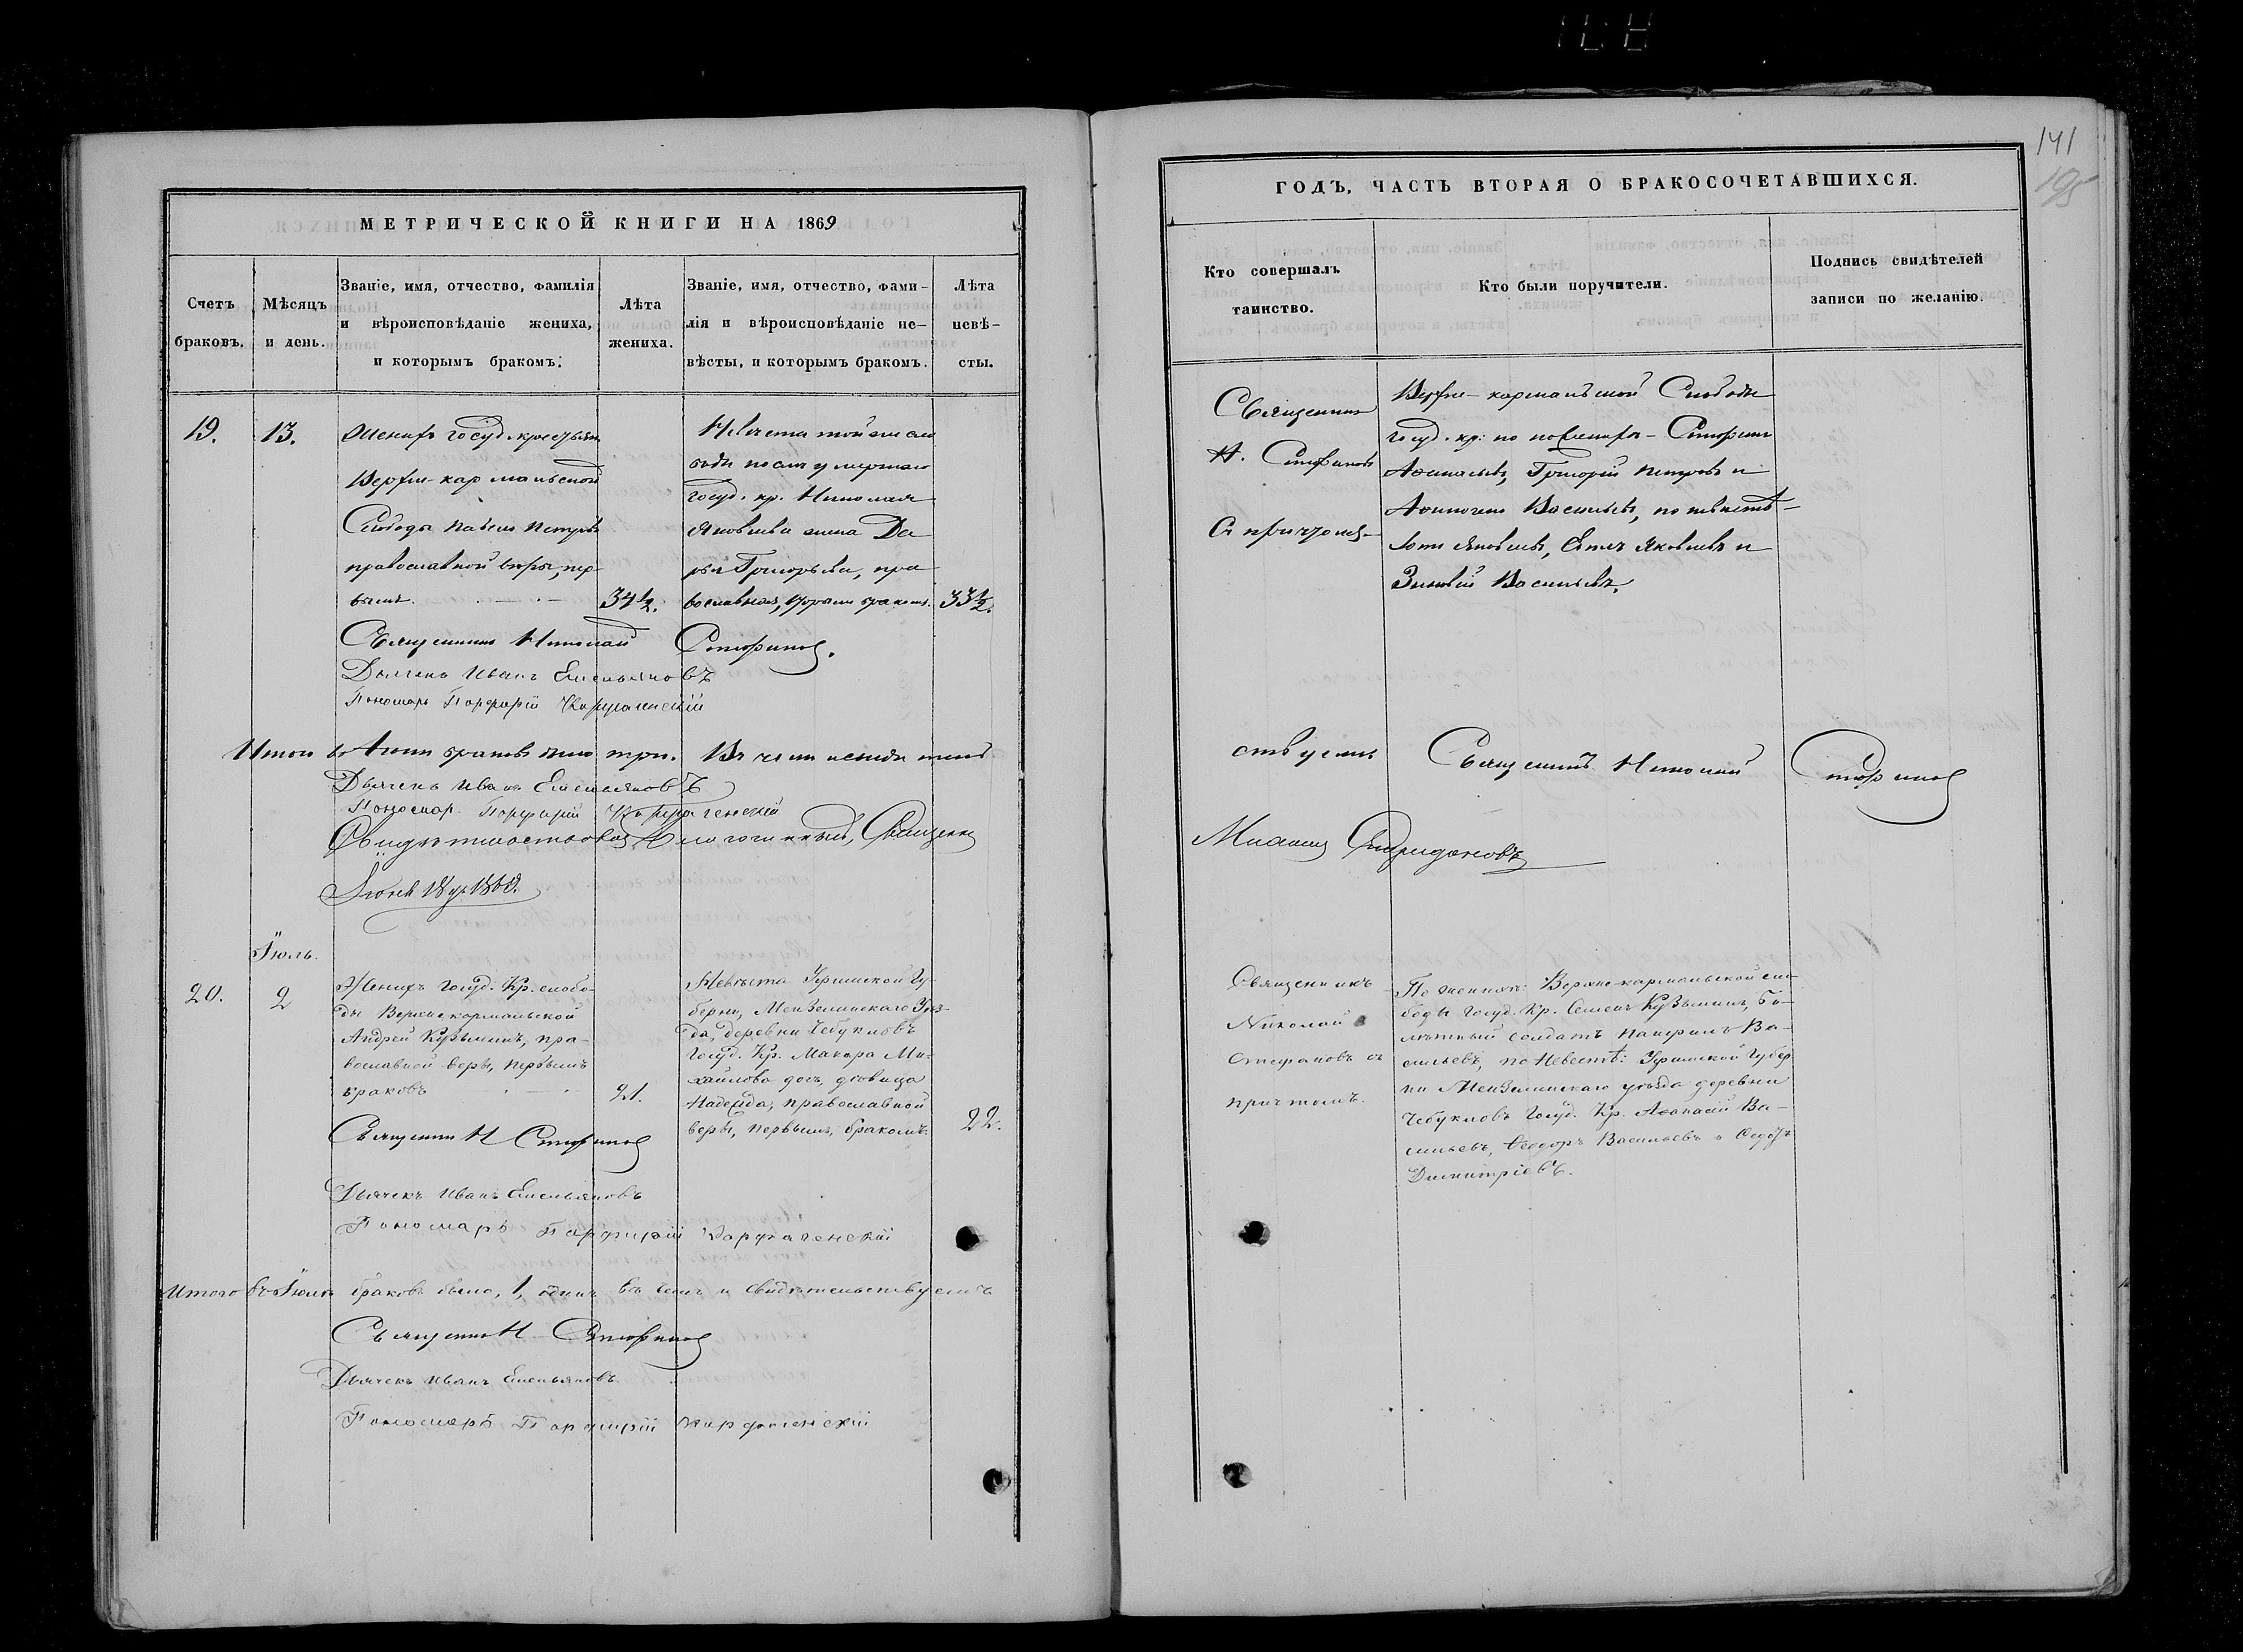 141
195
МЕТРИЧЕСКОЙ КНИГИ НА 1869
Счетъ браковъ.
Мѣсяцъ и день.
Званіе, имя, отчество, фамилія
и вѣроисповѣданіе жениха,
и которымъ бракомъ.
Лѣта
жениха.
Званіе, имя, отчество, фами-
лія и вѣроисповѣданіе не-
вѣсты, и которымъ бракомъ.
Лѣта
невѣ-
сты.
19.
13.
Женихъ госуд. крестьян.
Верхне-кармальской
Слободы Павелъ Петровъ
православной вѣры, пер-
вымъ.
34½.
Невѣста той же сло
боды послѣ умершаго
госуд. кр. Николая
Яковлева жена Да
рья Григорьева, пра
вославная, вторымъ бракомъ.
33½.
Священникъ Николай Стефановъ.
Дьячекъ Иванъ Емельяновъ
Пономарь Порфирій
Итого въ Іюнѣ браковъ было три. Въ чемъ и свидѣтель
Дьячекъ Иванъ Емельяновъ
Пономар. Порфирій
Свидѣтельствовалъ Благочинный, Священн
Іюня 18 д. 1869.
Іюль.
20.
2
Женихъ Госуд. Кр. слобо-
ды Верхнекармальской
Андрей Кузьминъ, пра-
вославной веры, первымъ
браковъ
21.
Невѣста Уфимской Гу-
берни, Мензелинскаго Уѣз-
да, деревни Чебуковъ
Госуд. Кр. Макара Ми-
хайлова дочь, девица
Надежда, православной
веры, первымъ, бракомъ.
22.
Священник Н Стефановъ
Дьячекъ Иванъ Емельяновъ
Пономарь Порфирій
Итого въ Іюлѣ браковъ было, 1, одинъ въ чемъ и свидѣтельствуемъ
Священник Н Стефановъ
Дьячекъ Иванъ Емельяновъ
Пономарь Порфирій
ГОДЪ, ЧАСТЬ ВТОРАЯ О БРАКОСОЧЕТАВШИХСЯ.
Кто совершалъ
таинство.
Кто были поручители.
Подпись свидѣтелей
записи по желанію.
Священникъ
Н. Стефановъ
съ причтомъ
Верхне-кармальской Слободы
госуд. кр: по женихѣ - Стефанъ
Афанасьевъ, Григорій Петровъ и
Васильевъ, по невѣстѣ -
Яковлевъ, Яковлевъ и
Зиновій Васильевъ.
ствуемъ
Священникъ Николай Стефановъ
Михаилъ Спиридоновъ
Священникъ
Николай
Стефановъ съ
причтомъ.
По женихѣ: Верхне-кармальской сло-
боды Госуд. Кр. Семенъ Кузьминъ, Би-
летный солдатъ Ва-
сильевъ, по Невестѣ: Уфимской Губер
ни Мензелинскаго уѣзда деревни
Чебуковъ Госуд. Кр. Афанасій Ва-
сильевъ, Ѳеодоръ Васильевъ и
Димитріевъ.